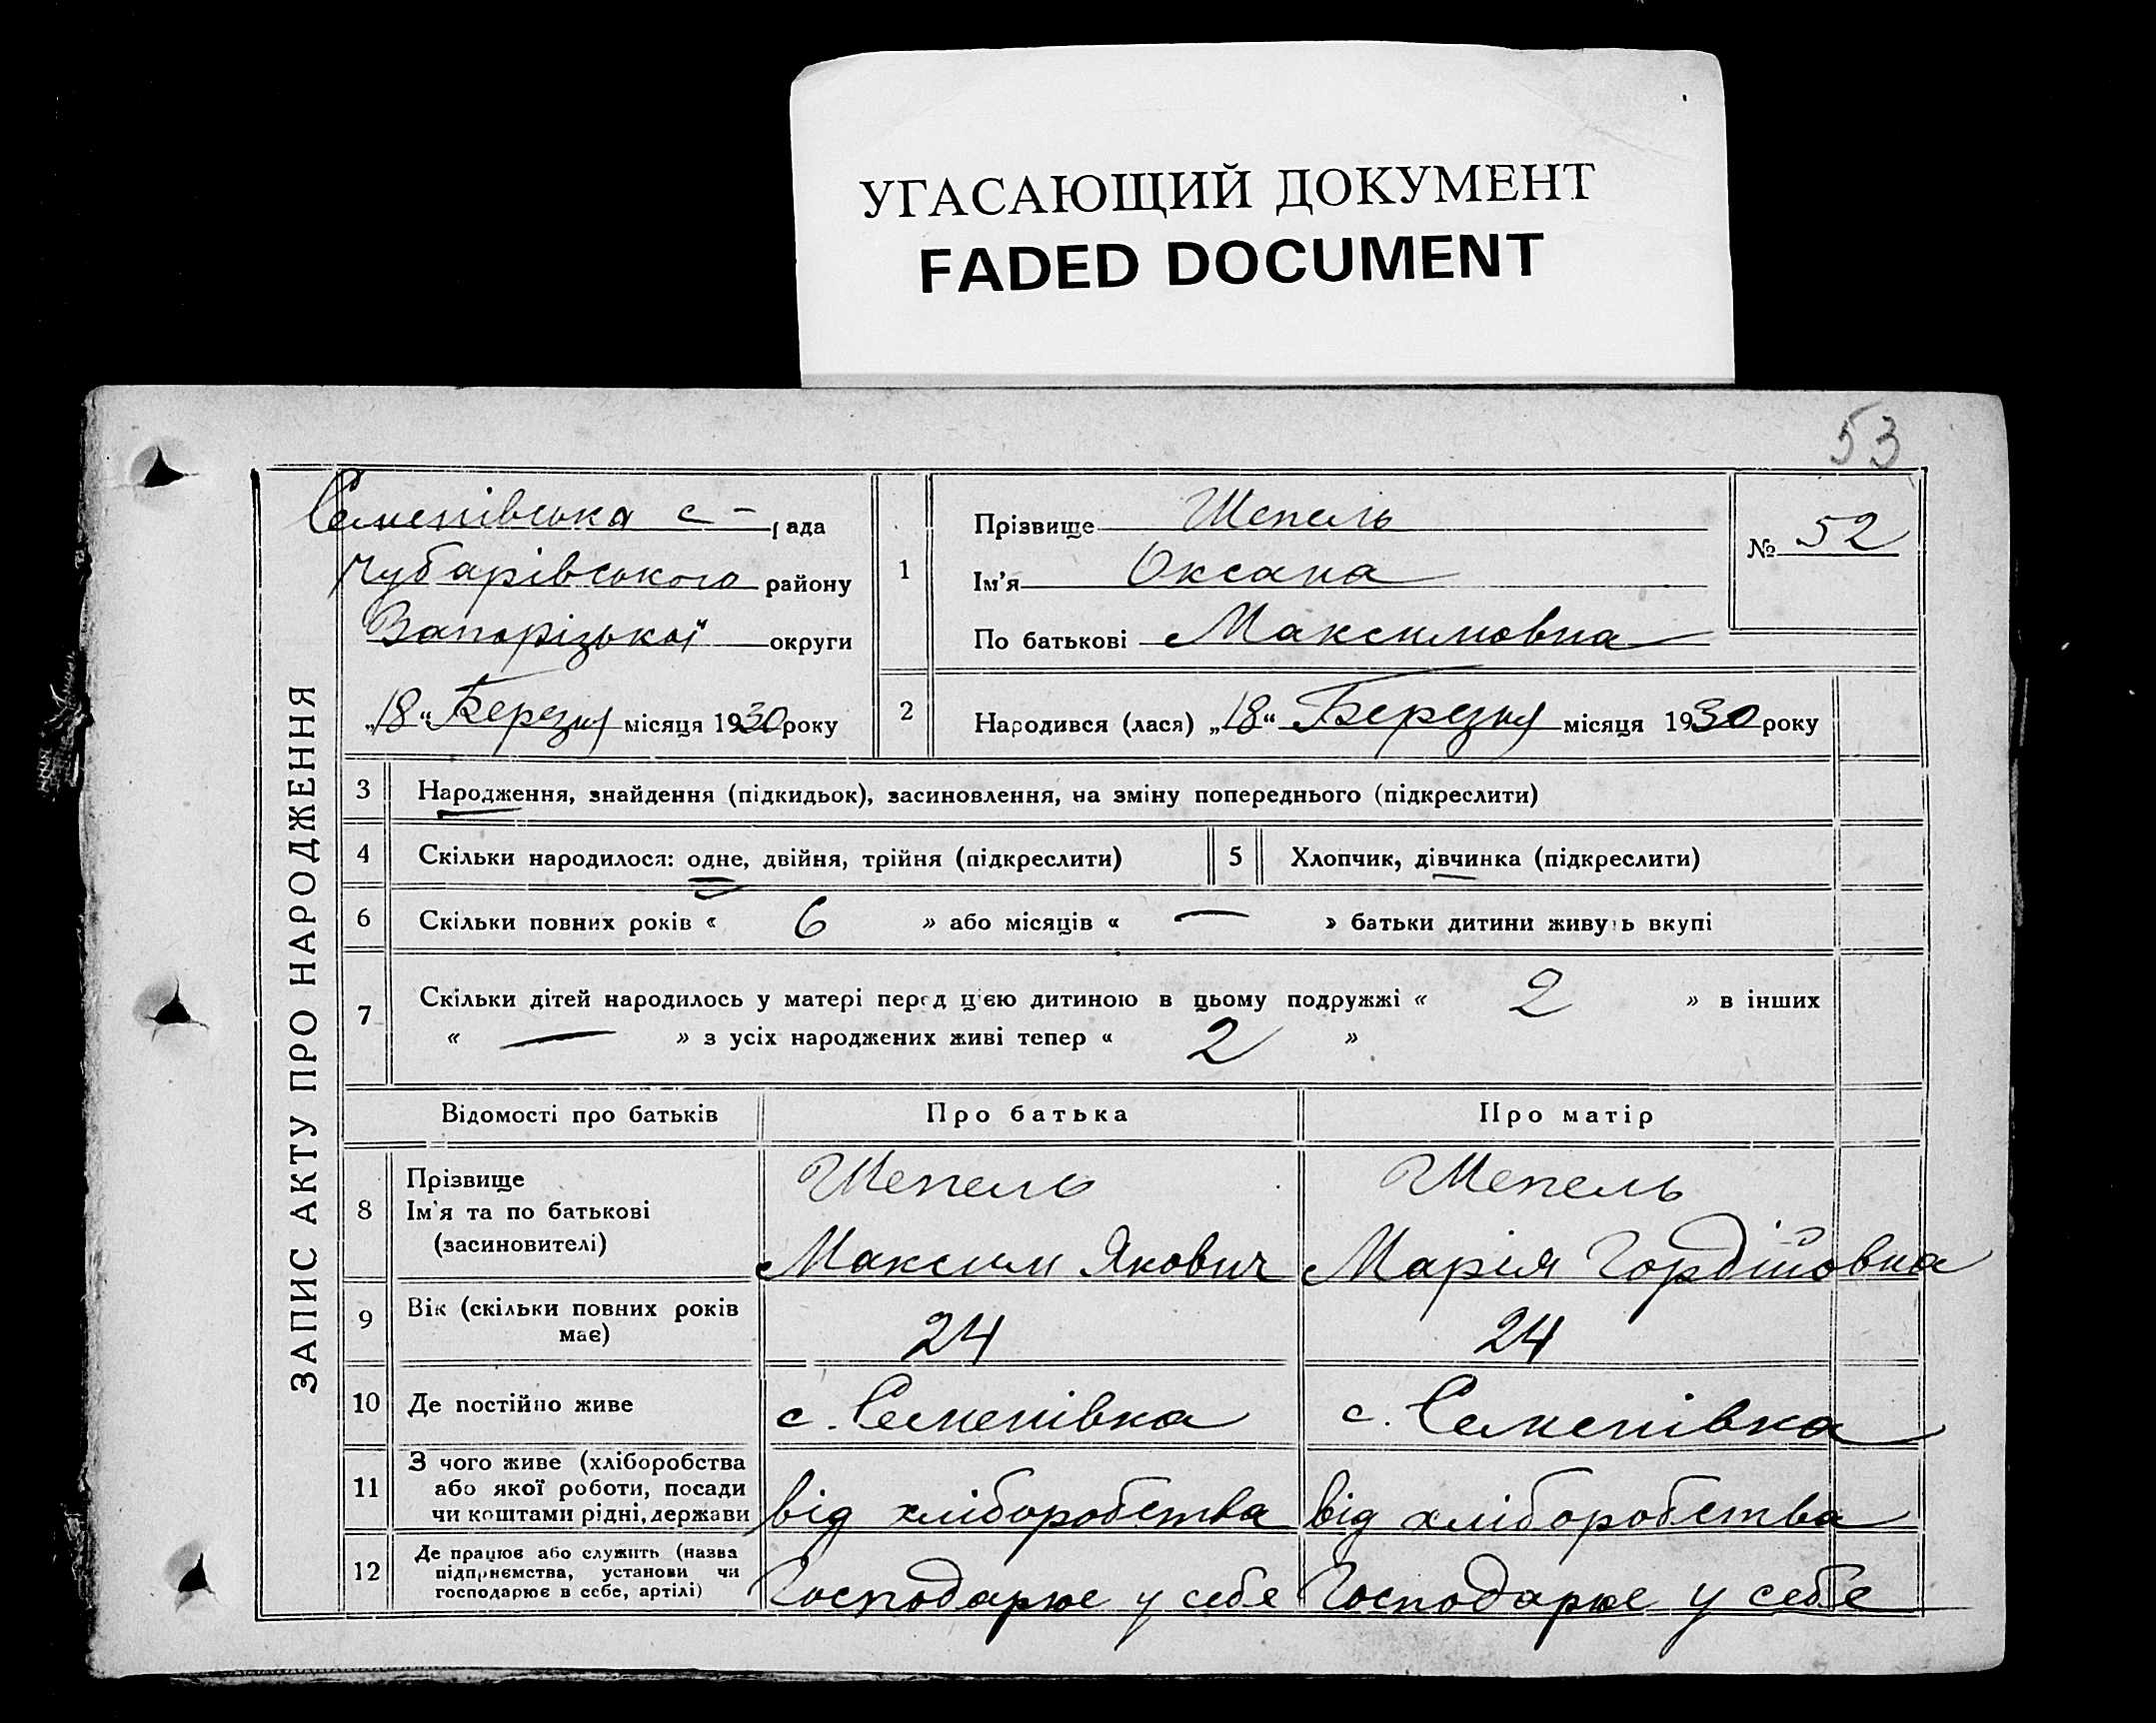 УГАСАЮЩИЙ ДОКУМЕНТ
FADED DOCUMENT
53
ЗАПИС АКТУ ПРО НАРОДЖЕННЯ
Семенівська с - рада
Чубарівського району
Запорізької округи
„18“ Березня місяця 1930 року
1
Прізвище Шепель
Ім'я Оксана
По батькові Максимовна
№ 52
2 Народився (лася) „18“ Березня місяця 1930 року
3 Народження, знайдення (підкидьок), засиновлення, на зміну попереднього (підкреслити)
4 Скільки народилося: одне, двійня, трійня (підкреслити) 5 Хлопчик, дівчинка (підкреслити)
6 Скільки повних років « 6 » або місяців « — » батьки дитини живуть вкупі
7 Скільки дітей народилось у матері перед цією дитиною в цьому подружжі « 2 » в інших
« — » з усіх народжених живі тепер « 2 »
Відомості про батьків Про батька Про матір
8 Прізвище Шепель Шепель
Ім'я та по батькові
(засиновителі) Максим Якович Марія Гордіївна
9 Вік (скільки повних років
має) 24 24
10 Де постійно живе с. Семенівка с. Семенівка
11 З чого живе (хліборобства
або якої роботи, посади
чи коштами рідні, держави від хліборобства від хліборобства
12 Де працює або служить (назва
підприємства, установи чи
господарює в себе, артілі) Господарює у себе Господарює у себе